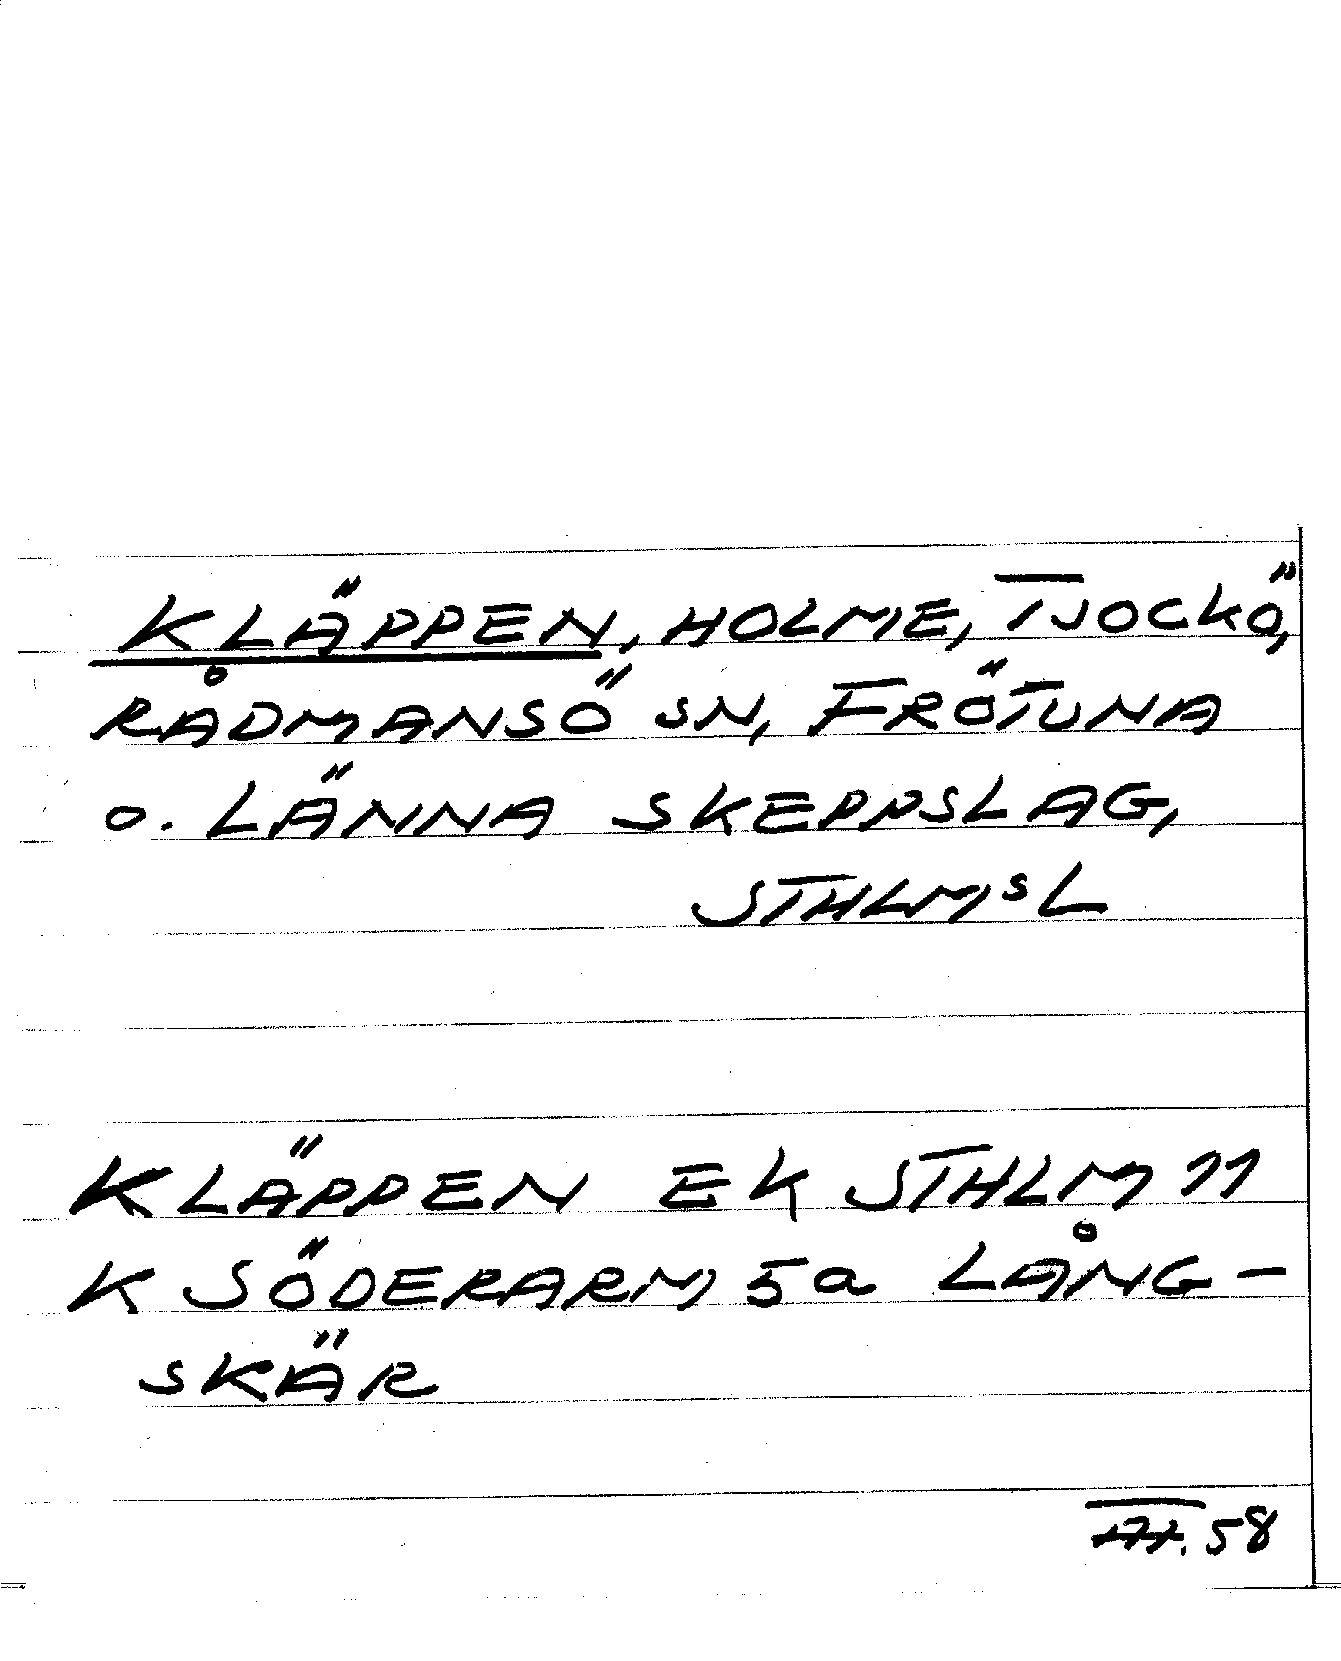 KLÄPPEN, HOLME, TJOCKÖ,
RÅDMANSÖ SN, FRÖTUNA
o. LÄNNA SKEPPSLAG,
STHLMsL
KLÄPPEN EK STHLM 11
K SÖDERARM 5a LÅNG-
SKÄR
58